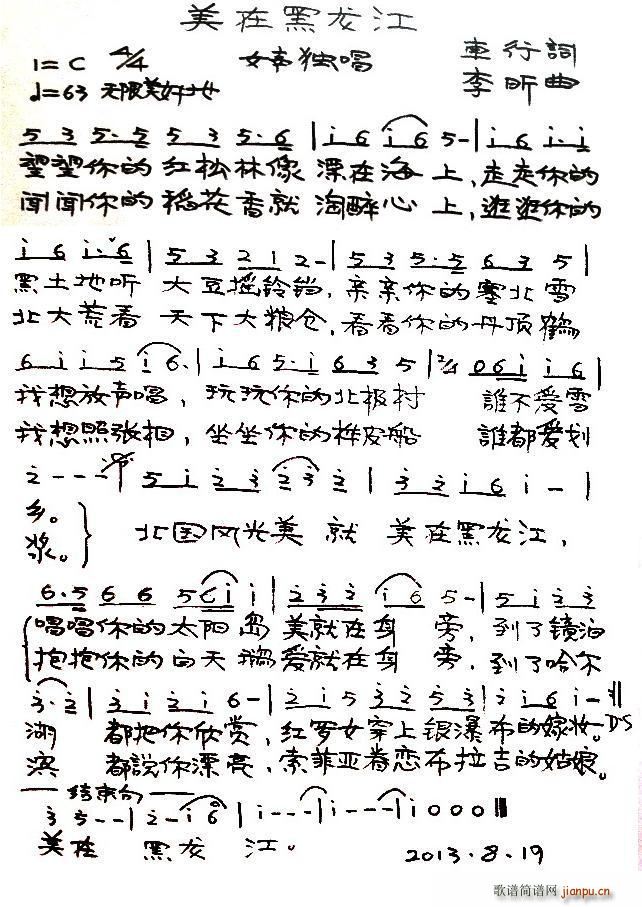 美在黑龙江
1=C 4/4 女声独唱 車行詞
♩=63 无限美好地 李昕曲
5 3 5·5 5 3 5·6 | i 6 i 6 5 - | i 6 i·i
望望你的红松林像漂在海上,走走你的
闻闻你的稻花香就淘醉心上,逛逛你的
i 6 i·6 | 5 3 2 1 2 - | 5 3 5·5 6 3 5 |
黑土地听大豆摇铃铛,亲亲你的塞北雪
北大荒看天下大粮仓,看看你的丹顶鹤
6 i i 5 i 6· | i 6 5·i 6 3 5 | 2/4 0 6 i i 6 |
我想放声唱,玩玩你的北极村 誰不爱雪
我想照张相,坐坐你的桦皮船 誰都爱划
2 - - - | 5 i 2 3 2 3 2 | 3 2 i 6 i - |
乡。 北国风光美就美在黑龙江,
浆。
6·5 6 6 5 6 i i | 2 3 2 i 6 5 - | 5 i 2 3
唱唱你的太阳岛美就在身旁,到了镜泊
抱抱你的白天鹅爱就在身旁,到了哈尔
3·2 | 3 i 2 i 6 - | 2 i 5 3 2 5 3 | 2 i 6 i - D.S
湖 都把你欣赏,红罗女穿上银瀑布的嫁妆。
滨 都説你漂亮,索菲亚眷恋布拉吉的姑娘。
结束句
3 5 - - | 2 - i 6 | i - - - | i - - - | i 0 0 0
美在黑龙江。 2013.8.19
歌谱简谱网 jianpu.cn